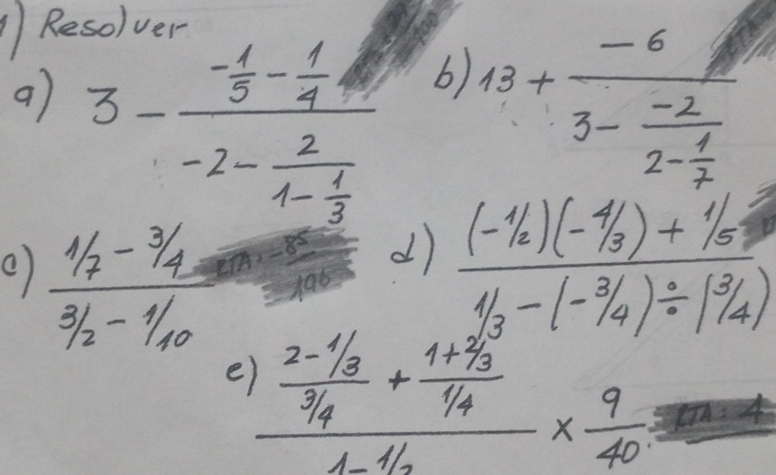 1) Resolver
a) 3 - (-1/5 - 1/4) / (-2 - 2/(1 - 1/3))
b) 13 + (-6) / (3 - (-2)/(2 - 1/7))
c) (1/7 - 3/4) / (3/2 - 1/10) RTA: -85/196
d) ((-1/2)(-4/3) + 1/5) / (1/3 - (-3/4) ÷ (3/4))
e) ((2 - 1/3)/(3/4) + (1 + 2/3)/(1/4)) / (1 - 1/2) x 9/40 RTA: 4